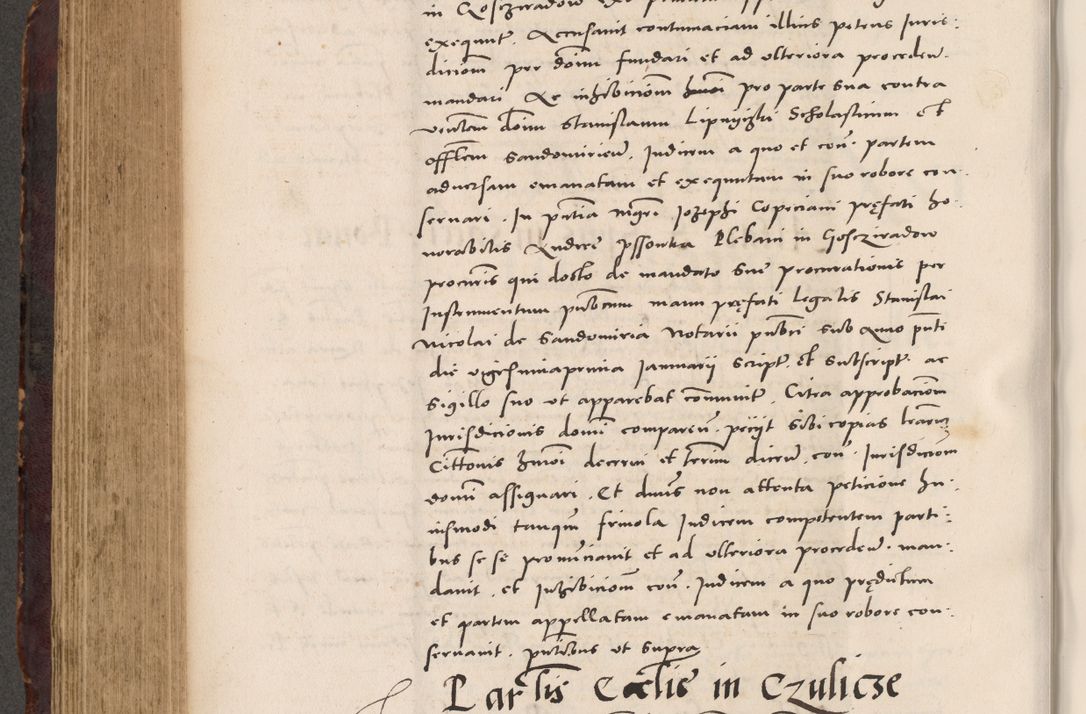 in Goscziradow
exequut. Accusavit contumaciam illius petens Juris:
dicionem per domini fundari et ad ulteriora proceden.
mandari. Ac inhibicionem huiusmodi pro parte sua contra
venerabilem dominum Stanislaum Lipnyczki Scholasticum et
officialem Sandomirien. Judicem a quo et con. partem
adversam emanatam et exequutam in suo robore con
servari. In presentia magistri Josephi Copiciani pręfati ho:
norabilis Andreę Plebani in Goscziradow
procuratoris qui docto de mandato suę procurationis per
Instrumentum publicum manu pręfati legalis Stanislai
Nicolai de Sandomiria Notarii publici sub Anno presenti
die vigesimaprima Januarii script. et subscript. ac
sigillo suo ut apparebat communit. Citra approbacionem
Jurisdicionis domini comparen. peciyt sibi copias literarum
Citationis huiusmodi decerni et terminum dicen. con. Jurisdicionem
domini assignari. Et dominus non attenta peticione hu:
iusmodi tanquam frivola Judicem competentem parti:
bus se se pronunciavit et ad ulteriora proceden. man:
davit. et Inhibicionem con. Judicem a quo prędictum
et partem appellatam emanatam in suo robore con:
servavit. presentibus ut supra
Ecclesie in Czulicze